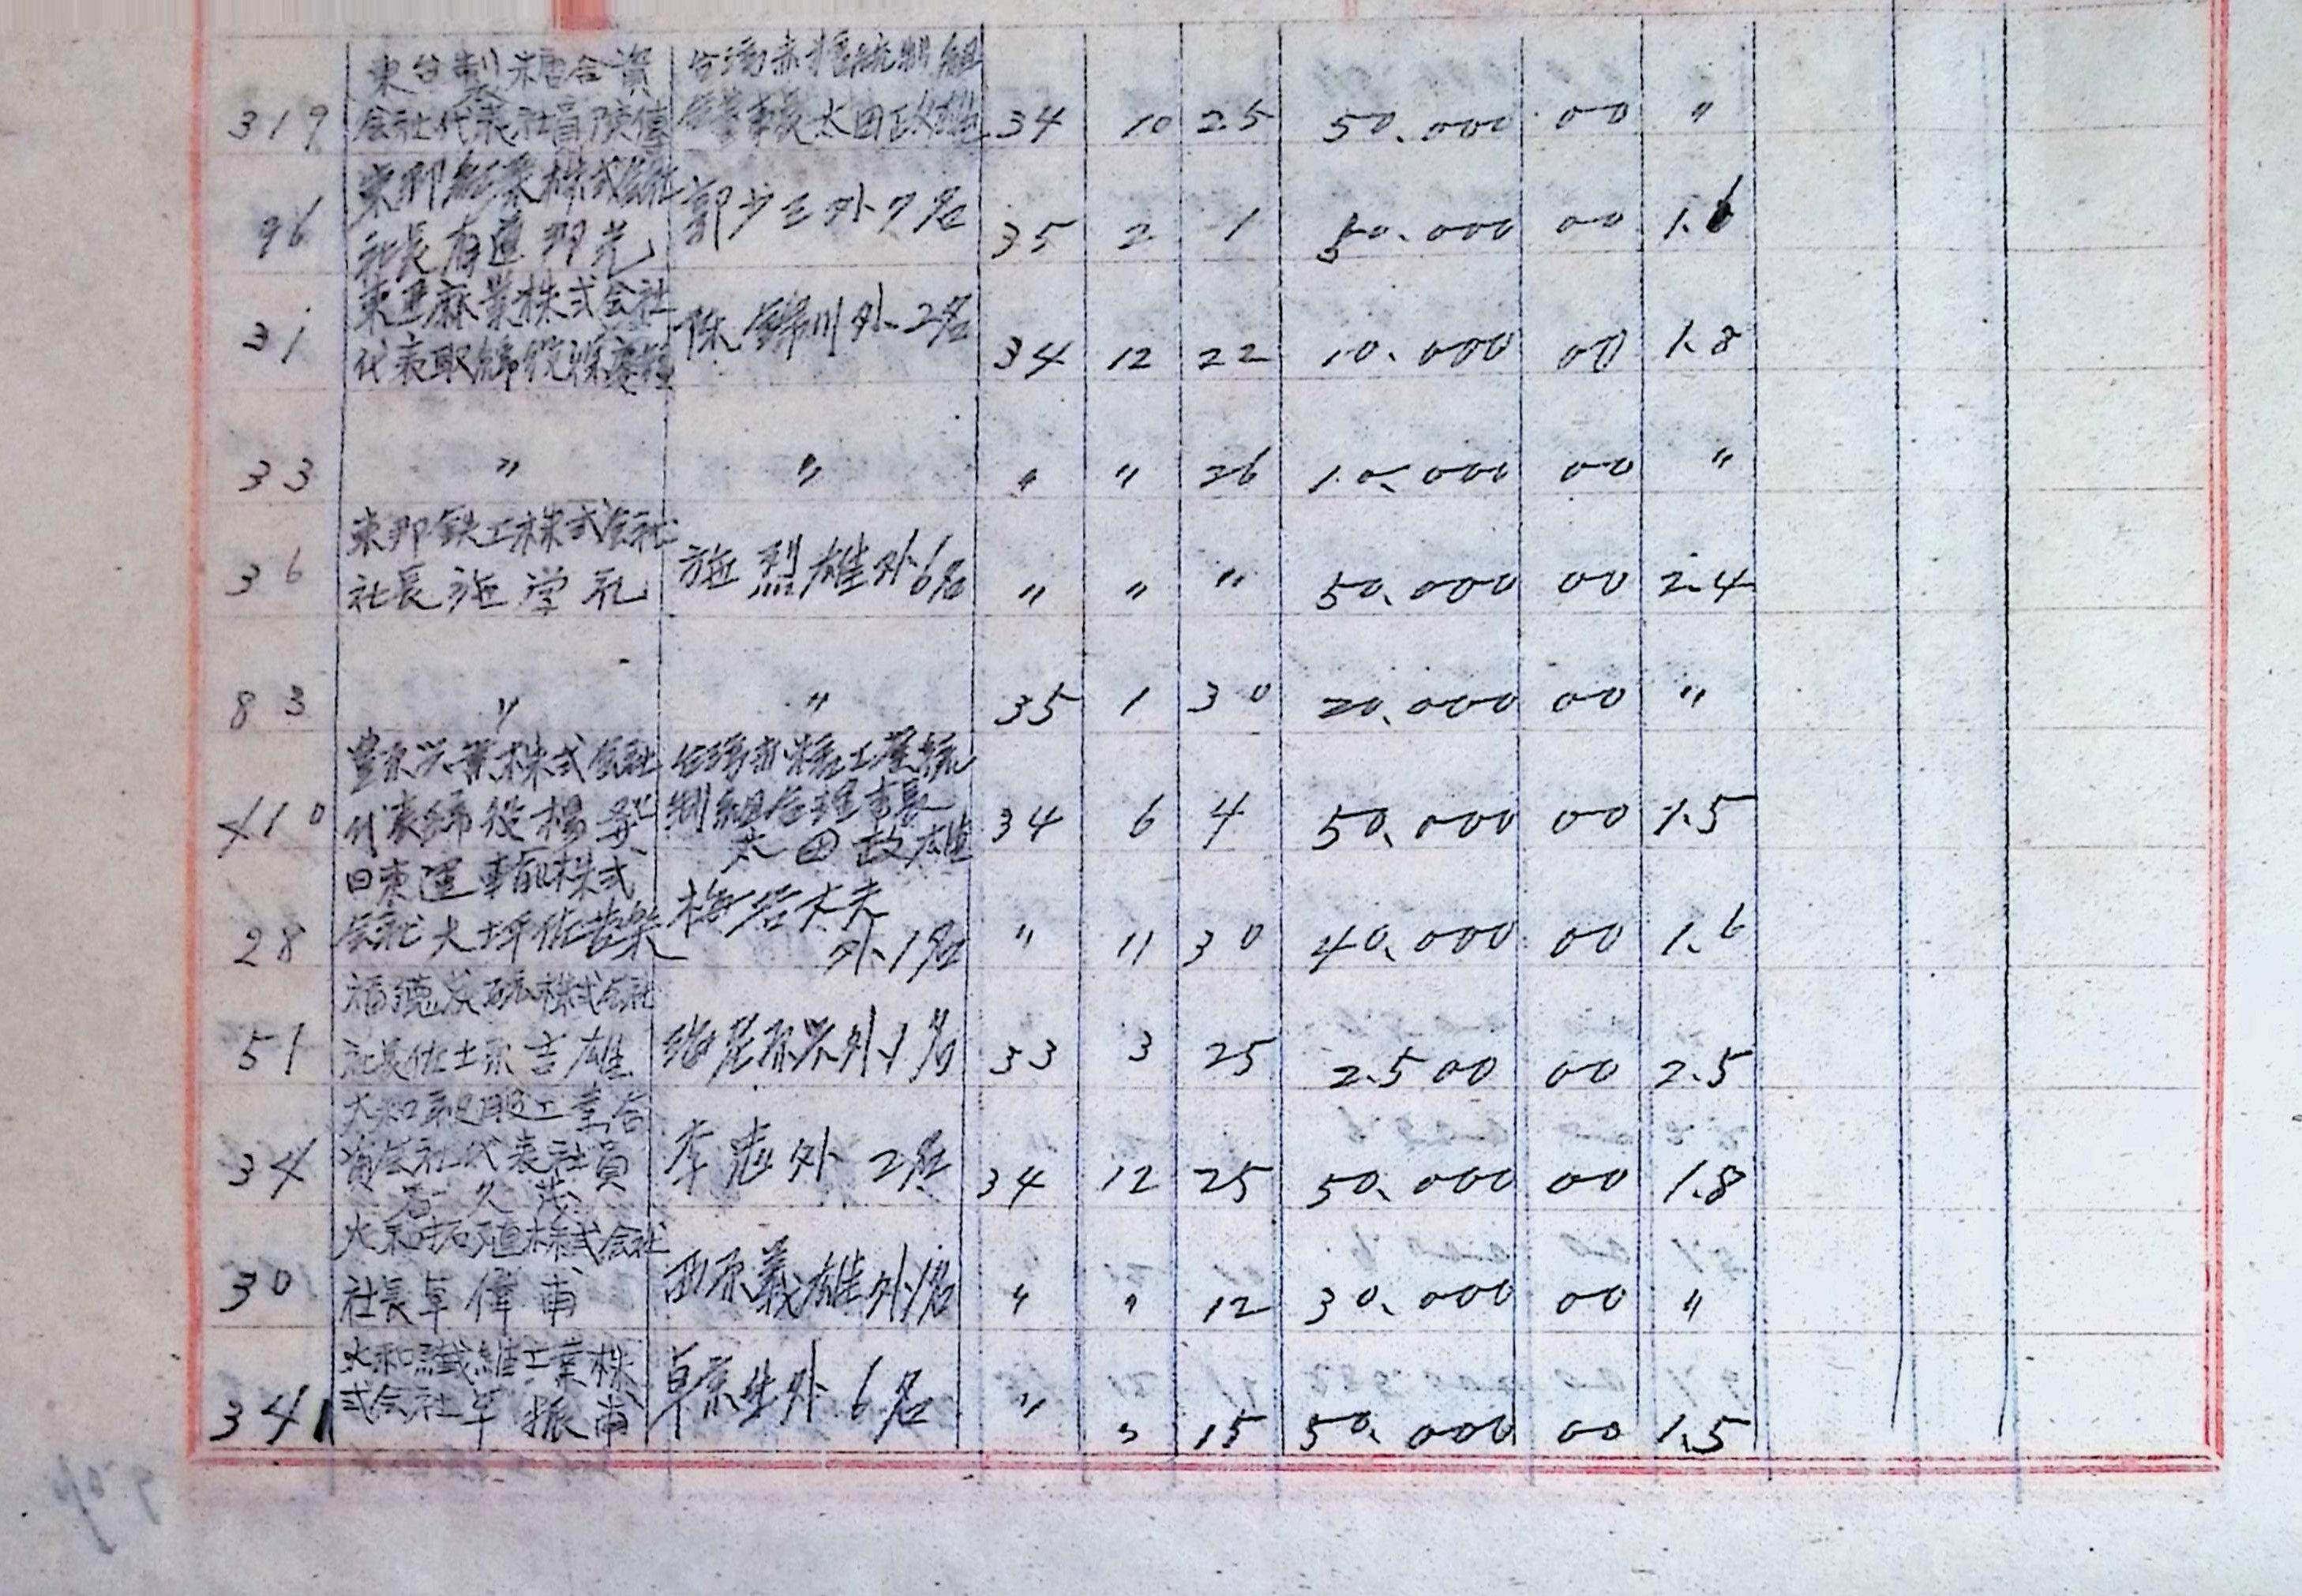 319 東台製糖合資会社代表社員陳 台湾赤糖統制組合 太田政雄 34 10 25 50.000 00 〃
96 東邦 業株式会社 社長有 邦光 郭少三外7名 35 2 1 50.000 00 1.6
31 東亜麻業株式会社 代表取締役 陳錦川外2名 34 12 22 10.000 00 1.8
33 〃 〃 〃 〃 26 10.000 00 〃
36 東邦鉄工株式会社 社長施学礼 施烈雄外6名 〃 〃 〃 50.000 00 2.4
83 〃 〃 35 1 30 20.000 00 〃
410 株式会社 締役楊 台湾赤糖工業統制組合理事長 太田政雄 34 6 4 50.000 00 1.5
28 日東運輸株式会社 大坪佐苦楽 外1名 〃 11 30 40.000 00 1.6
51 福徳炭砿株式会社 社長佐土原吉雄 外1名 33 3 25 2.500 00 2.5
34 大和 服工業合資会社代表社員 久茂 李 外2名 34 12 25 50.000 00 1.8
30 大和拓殖株式会社 社長卓偉甫 西原義雄外1名 〃 〃 12 30.000 00 〃
341 大和纎維工業株式会社 卓振甫 卓景生外6名 〃 3 15 50.000 00 1.5